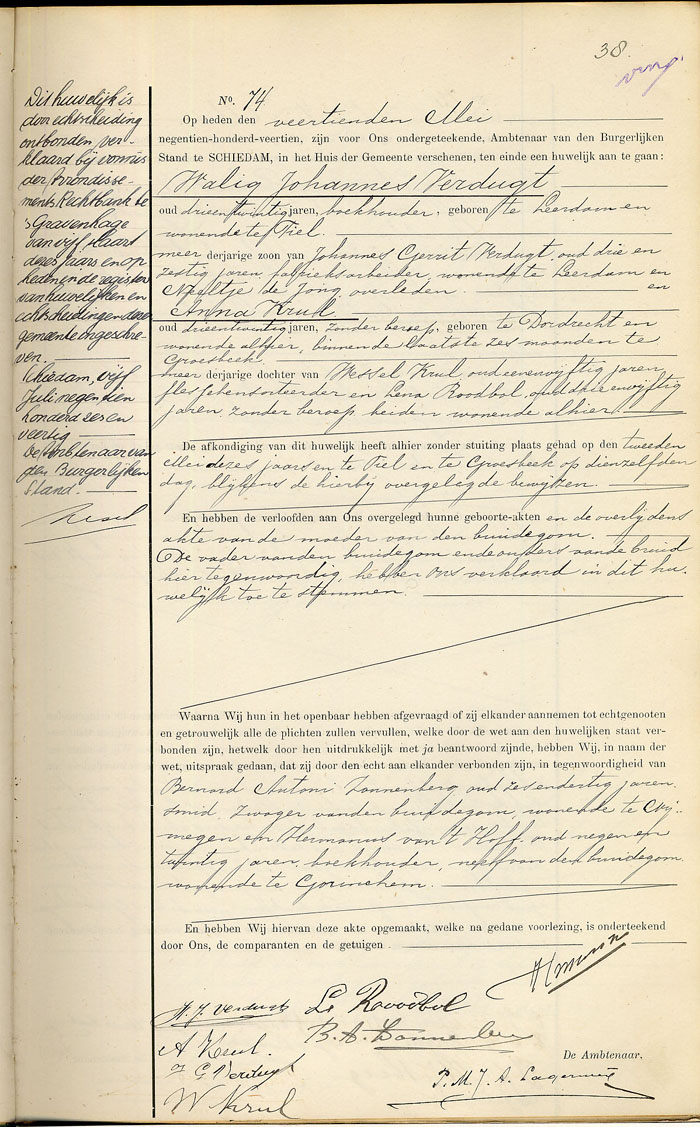 38
Dit huwelijk is
door echtscheiding
ontbonden ver-
klaard bij vonnis
der Arrondisse-
ments Rechtbank te
's Gravenhage
van vijf Maart
dezes jaars en op
heden in de registers
van huwelijken en
echtscheidingen dezer
gemeente ingeschre-
ven.
Schiedam, vijf
Juli negentien
honderd zes en
veertig
De Ambtenaar van
den Burgerlijken
Stand.
No. 74
Op heden den veertienden Mei
negentien-honderd-veertien, zijn voor Ons ondergeteekende, Ambtenaar van den Burgerlijken
Stand te SCHIEDAM, in het Huis der Gemeente verschenen, ten einde een huwelijk aan te gaan:
Walig Johannes Verdugt
oud drieentwintig jaren, boekhouder, geboren te Leerdam en
wonende te Tiel.
meer derjarige zoon van Johannes Gerrit Verdugt, oud drie en
zestig jaren, fabrieksarbeider, wonende te Leerdam en
Neeltje de Jong, overleden. en
Anna Krul
oud drieentwintig jaren, zonder beroep, geboren te Dordrecht en
wonende alhier, binnen de laatste zes maanden te
Groesbeek.
meer derjarige dochter van Wessel Krul oud eenenvijftig jaren,
flesschensorteerder en Lena Roodbol, oud drieenvijftig
jaren, zonder beroep, beiden wonende alhier.
De afkondiging van dit huwelijk heeft alhier zonder stuiting plaats gehad op den tweeden
Mei dezes jaars en te Tiel en te Groesbeek op dienzelfden
dag, blijkens de hierbij overgelegde bewijzen.
En hebben de verloofden aan Ons overgelegd hunne geboorte-akten en de overlijdens
akte van de moeder van den bruidegom.
De vader van den bruidegom en de ouders van de bruid
hier tegenwoordig, hebben ons verklaard in dit hu
welijk toe te stemmen.
Waarna Wij hun in het openbaar hebben afgevraagd of zij elkander aannemen tot echtgenooten
en getrouwelijk alle de plichten zullen vervullen, welke door de wet aan den huwelijken staat ver-
bonden zijn, hetwelk door hen uitdrukkelijk met ja beantwoord zijnde, hebben Wij, in naam der
wet, uitspraak gedaan, dat zij door den echt aan elkander verbonden zijn, in tegenwoordigheid van
Bernard Antoni Zonnenberg, oud zesendertig jaren,
smid, zwager van den bruidegom, wonende te Nij-
megen en Hermanus van 't Hoff, oud negen en
twintig jaren, boekhouder, neef van den bruidegom
wonende te Gorinchem.
En hebben Wij hiervan deze akte opgemaakt, welke na gedane voorlezing, is onderteekend
door Ons, de comparanten en de getuigen.
W. J. Verdugt
L. Roodbol
A Krul.
B. A. Zonnenberg
J G Verdugt
De Ambtenaar.
W Krul